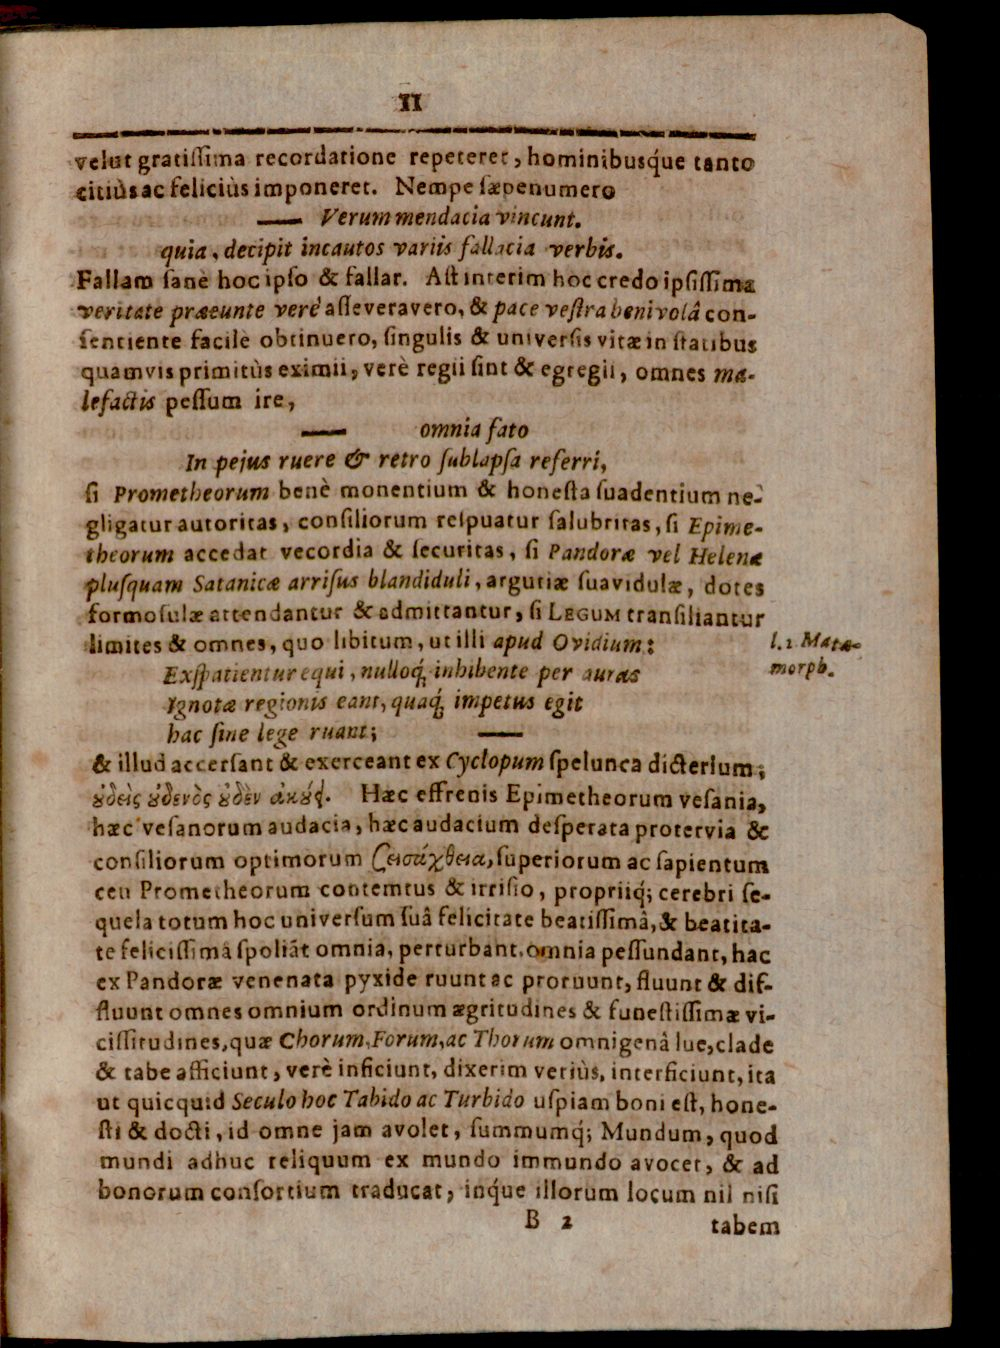 11
velut gratiſſima recordatione repeteret, hominibusq́ue tanto
citiùs ac feliciùs imponeret. Nempe ſæpenumero
—— Verum mendacia vincunt.
quia, decipit incautos variis fallacia verbis.
Fallam ſanè hoc ipſo & fallar. Aſt interim hoc credo ipſiſſima
veritate præeunte verè aſſeveravero, & pace veſtra benivolâ con-
ſentiente facilè obtinuero, ſingulis & univerſis vitæ in ſtatibus
quamvis primitùs eximii, verè regii ſint & egregii, omnes ma-
lefactis peſſum ire,
—— omnia fato
In pejus ruere & retro ſublapſa referri,
ſi Prometheorum benè monentium & honeſta ſuadentium ne-
gligatur autoritas, conſiliorum reſpuatur ſalubritas, ſi Epime-
theorum accedat vecordia & ſecuritas, ſi Pandoræ vel Helenæ
plusquam Satanicæ arriſus blandiduli, argutiæ ſuavidulæ, dotes
formoſulæ attendantur & admittantur, ſi LEGUM tranſiliantur
limites & omnes, quo libitum, ut illi apud Ovidium:
l. 2 Matæ-
morph.
Exſpatientur equi, nulloq́; inhibente per auras
Ignotæ regionis eant, quaq́; impetus egit
hac ſine lege ruant; ——
& illud accerſant & exerceant ex Cyclopum ſpelunca dicterium;
ȣ̓δεὶς ȣ̓δενὸς ȣ̓δὲν ἀκȣ́ει. Hæc effrenis Epimetheorum veſania,
hæc veſanorum audacia, hæc audacium deſperata protervia &
conſiliorum optimorum ζεισάχθεια, ſuperiorum ac ſapientum
ceu Prometheorum contemtus & irriſio, propriiq́; cerebri ſe-
quela totum hoc univerſum ſuâ felicitate beatiſſimâ, & beatita-
te feliciſſimâ ſpoliãt omnia, perturbant omnia peſſundant, hac
ex Pandoræ venenata pyxide ruunt ac proruunt, fluunt & dif-
fluunt omnes omnium ordinum ægritudines & funeſtiſſimæ vi-
ciſſitudines, quæ Chorum, Forum, ac Thorum omnigenâ lue, clade
& tabe afficiunt, verè inficiunt, dixerim veriùs, interficiunt, ita
ut quicquid Seculo hoc Tabido ac Turbido uſpiam boni eſt, hone-
ſti & docti, id omne jam avolet, ſummumq́; Mundum, quod
mundi adhuc reliquum ex mundo immundo avocet, & ad
bonorum conſortium traducat, inq́ue illorum locum nil niſi
B 2 tabem